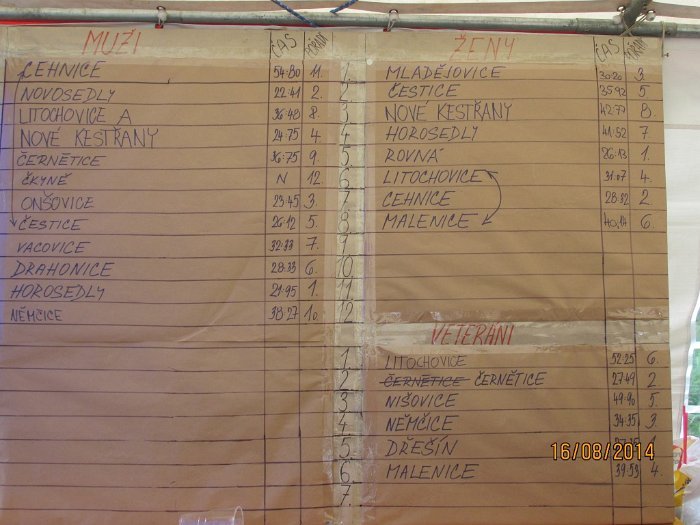 MUŽI ČAS POŘADÍ
CEHNICE 54:80 11.
NOVOSEDLY 22:41 2.
LITOCHOVICE A 36:48 8.
NOVÉ KESTŘANY 24:75 4.
ČERNĚTICE 36:75 9.
ČKYNĚ N 12.
ONŠOVICE 23:45 3.
ČESTICE 26:12 5.
VACOVICE 32:33 7.
DRAHONICE 28:33 6.
HOROSEDLY 21:95 1.
NĚMČICE 38:27 10.
ŽENY ČAS POŘADÍ
1. MLADĚJOVICE 30:20 3
2. ČESTICE 35:92 5
3 NOVÉ KESTŘANY 8.
4 HOROSEDLY 41:52 7
5 ROVNÁ 26:13 1.
6 LITOCHOVICE 31:07 4.
7 CEHNICE 28:32 2
8 MALENICE 40:14 6.
9
10.
11
12
VETERÁNI
1. LITOCHOVICE 52:25 6.
2 ČERNĚTICE ČERNĚTICE 27:49 2
3 NIŠOVICE 49:90 5.
4. NĚMČICE 34:35 3.
5 DŘEŠÍN
6. MALENICE 39:53 4.
7.
16/08/2014